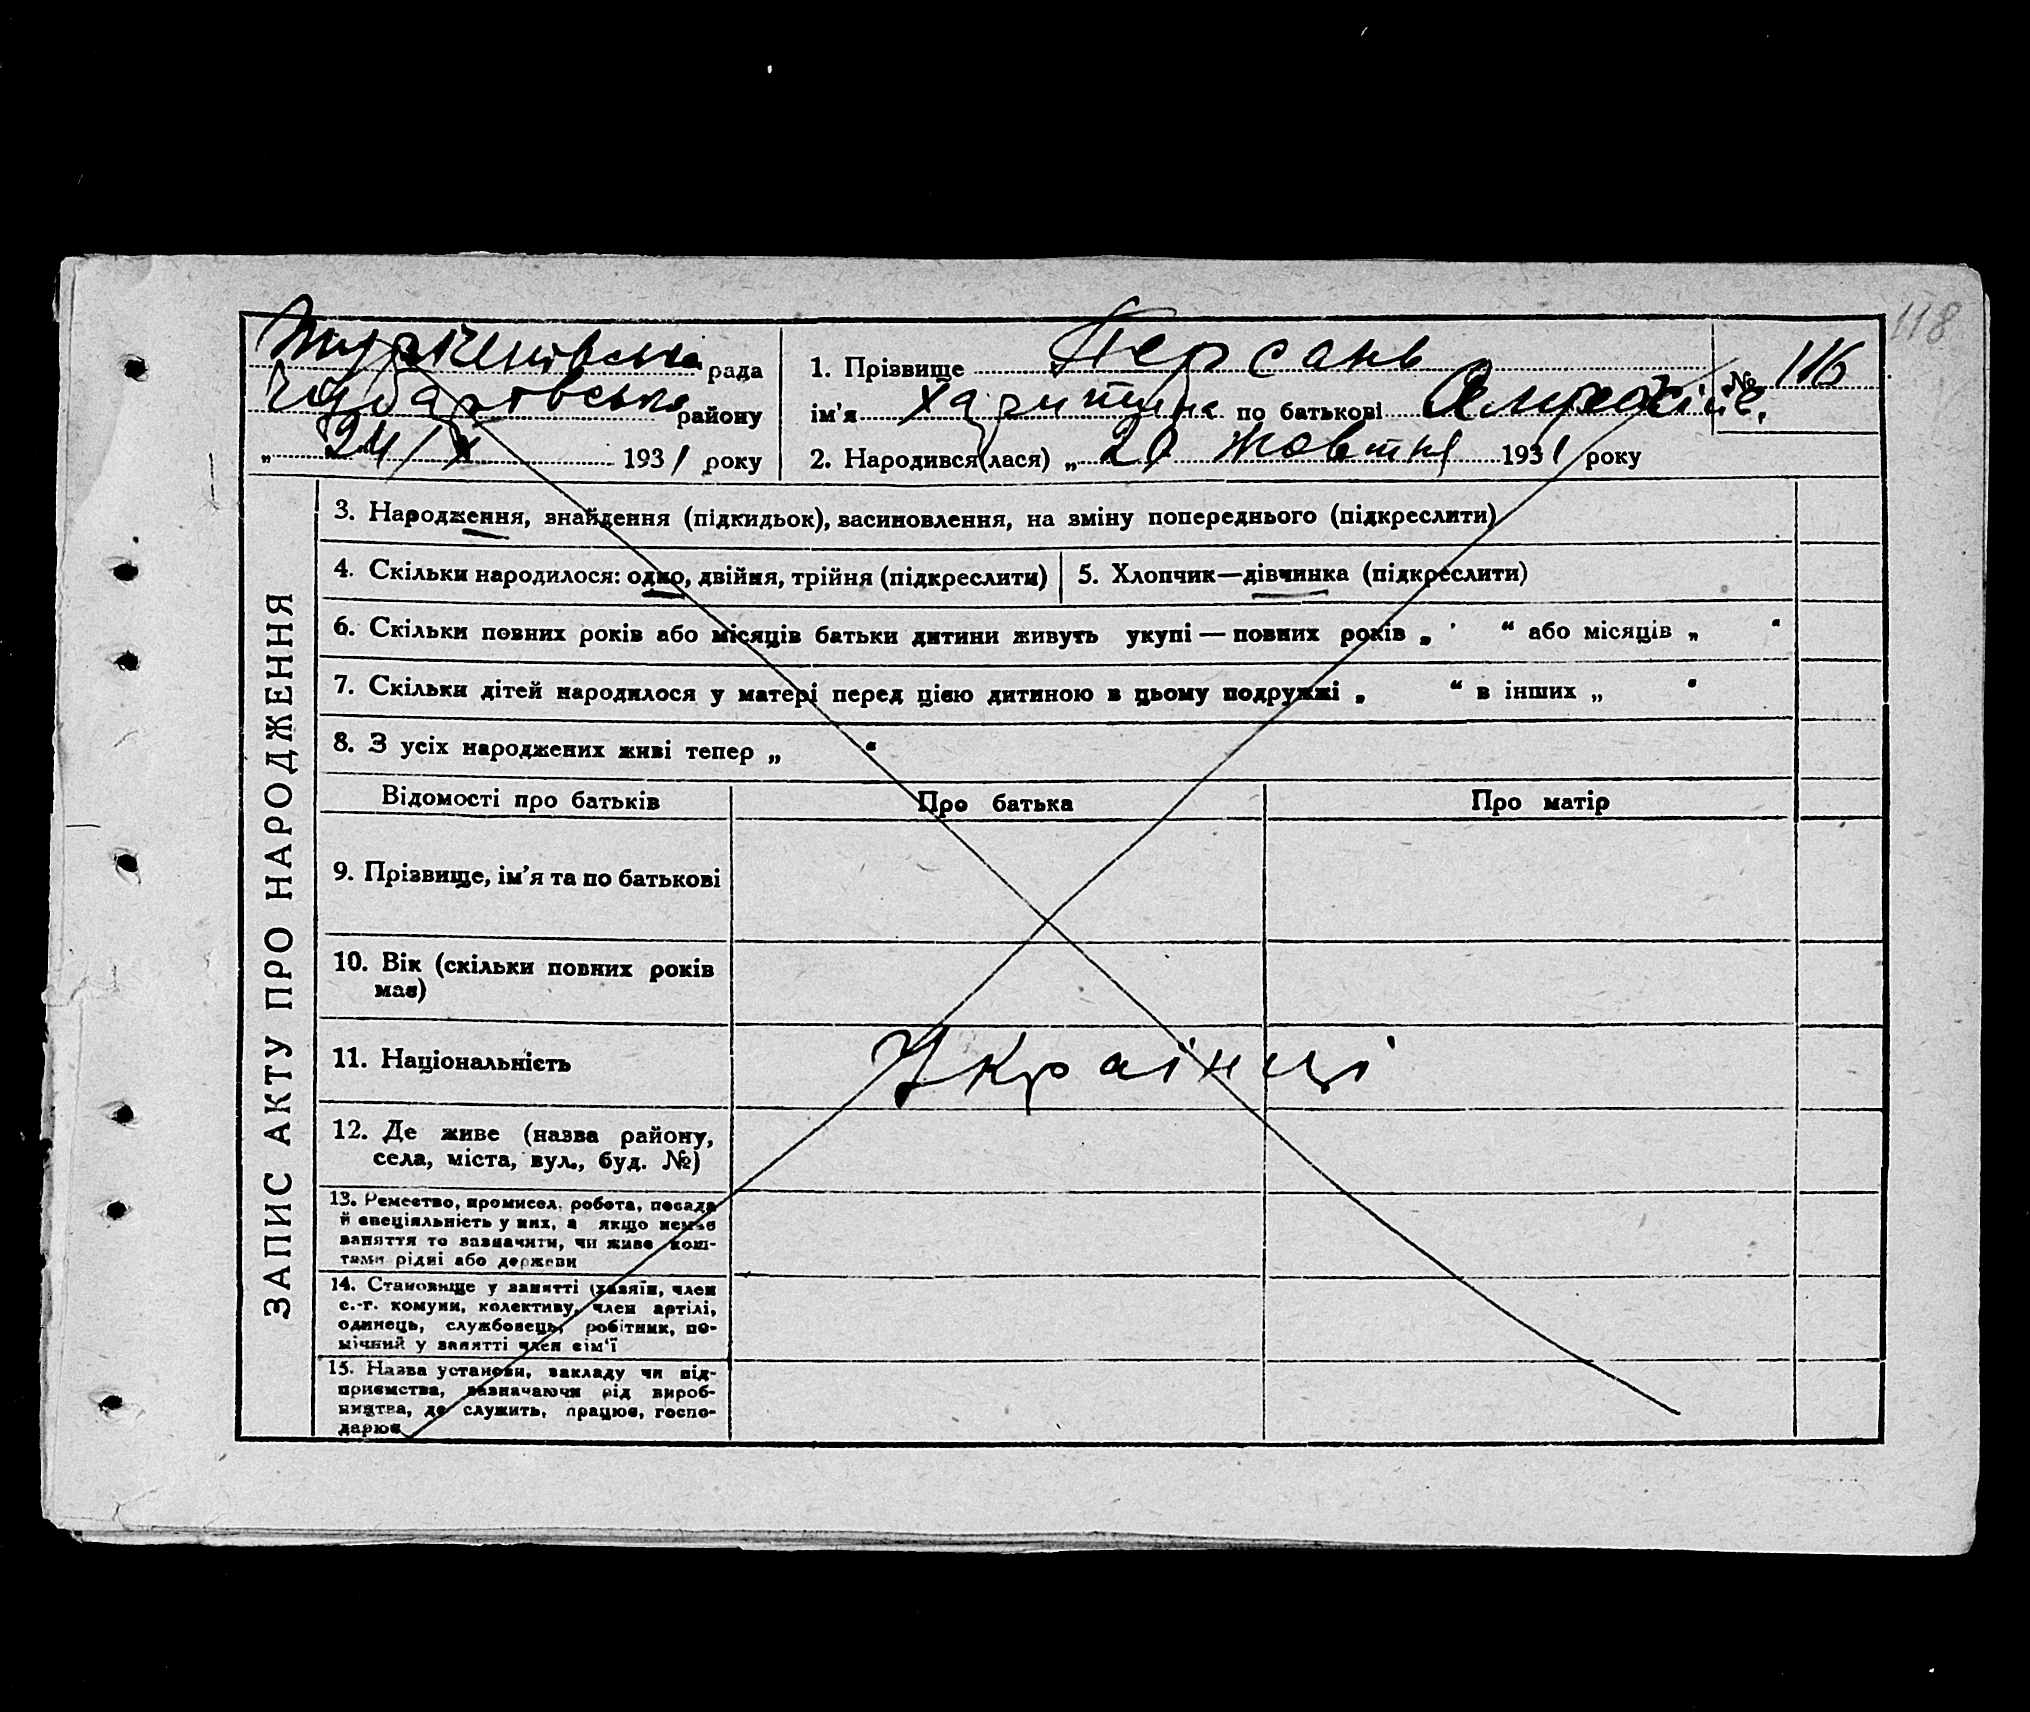 118
рада
Чубарівська району
„ 24/X 1931 року
1. Прізвище Персань
№ 116
ім'я Харитина по батькові
2. Народився(лася) „ 20 Жовтня 1931 року
ЗАПИС АКТУ ПРО НАРОДЖЕННЯ
3. Народження, знайдення (підкидьок), засиновлення, на зміну попереднього (підкреслити)
4. Скільки народилося: одно, двійня, трійня (підкреслити) 5. Хлопчик—дівчинка (підкреслити)
6. Скільки повних років або місяців батьки дитини живуть укупі — повних років „ “ або місяців „ “
7. Скільки дітей народилося у матері перед цією дитиною в цьому подружжі „ “ в інших „ “
8. З усіх народжених живі тепер „ “
Відомості про батьків Про батька Про матір
9. Прізвище, ім'я та по батькові
10. Вік (скільки повних років
має)
11. Національність Українці
12. Де живе (назва району,
села, міста, вул., буд. №)
13. Ремество, промисел, робота, посада
й спеціяльність у них, а якщо немає
заняття то зазначити, чи живе кош-
тами рідні або держави
14. Становище у занятті (хазяїн, член
с.-г. комуни, колективу, член артілі,
одинець, службовець, робітник, по-
мічний у занятті член сім'ї
15. Назва установи, закладу чи під-
приємства, зазначаючи рід вироб-
ництва, де служить, працює, госпо-
дарює